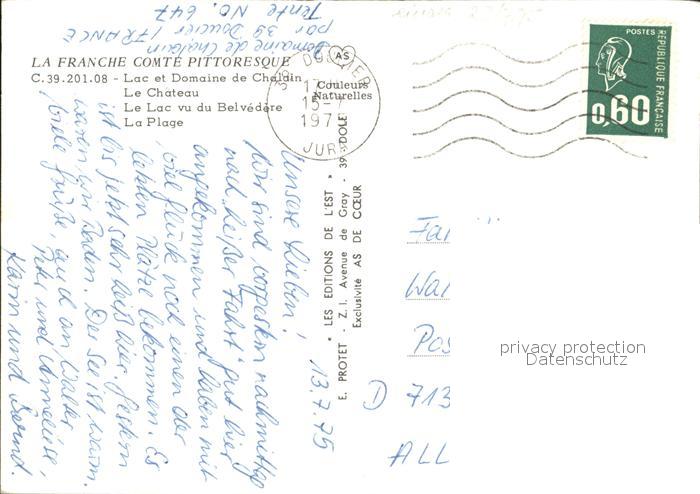 Domaine de Chalain
par 39 Doucier / FRANCE
Tente NO. 647
LA FRANCHE COMTÉ PITTORESQUE
C.39.201.08 - Lac et Domaine de Chalain
Le Chateau
Le Lac vu du Belvédère
La Plage
AS
Couleurs
Naturelles
DOUCIER
15-7
1975
JURA
POSTES
REPUBLIQUE FRANÇAISE
0,60
" LES EDITIONS DE L'EST "
E. PROTET - Z.I. Avenue de Gray - 39 DOLE
Exclusivité AS DE CŒUR
13.7.75
Unsere Lieben!
Wir sind vorgestern nahmittag
nach "heißer Fahrt" gut hier
angekommen und haben mit
viel Glück noch einen der
letzten Plätze bekommen. Es
ist bis jetzt sehr heiß hier. Gestern
waren wir Baden. Der See ist warm.
Viele Grüße, auch an Walter,
Peter und Anneliese,
Karin und Bernd.
Fa
Wa
Pos
D 713
ALL
privacy protection
Datenschutz